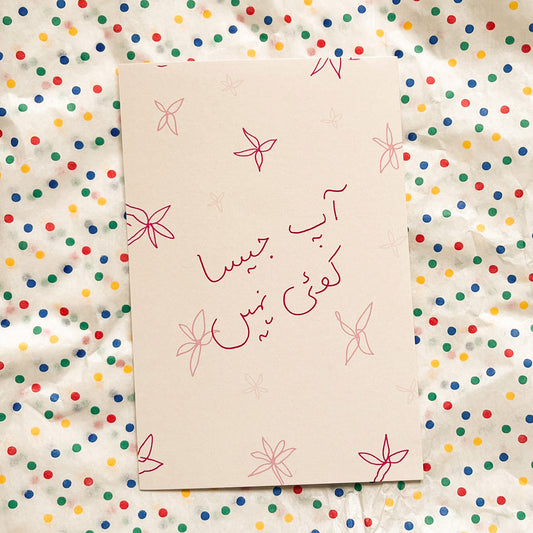 آپ جیسا
کوئی نہیں